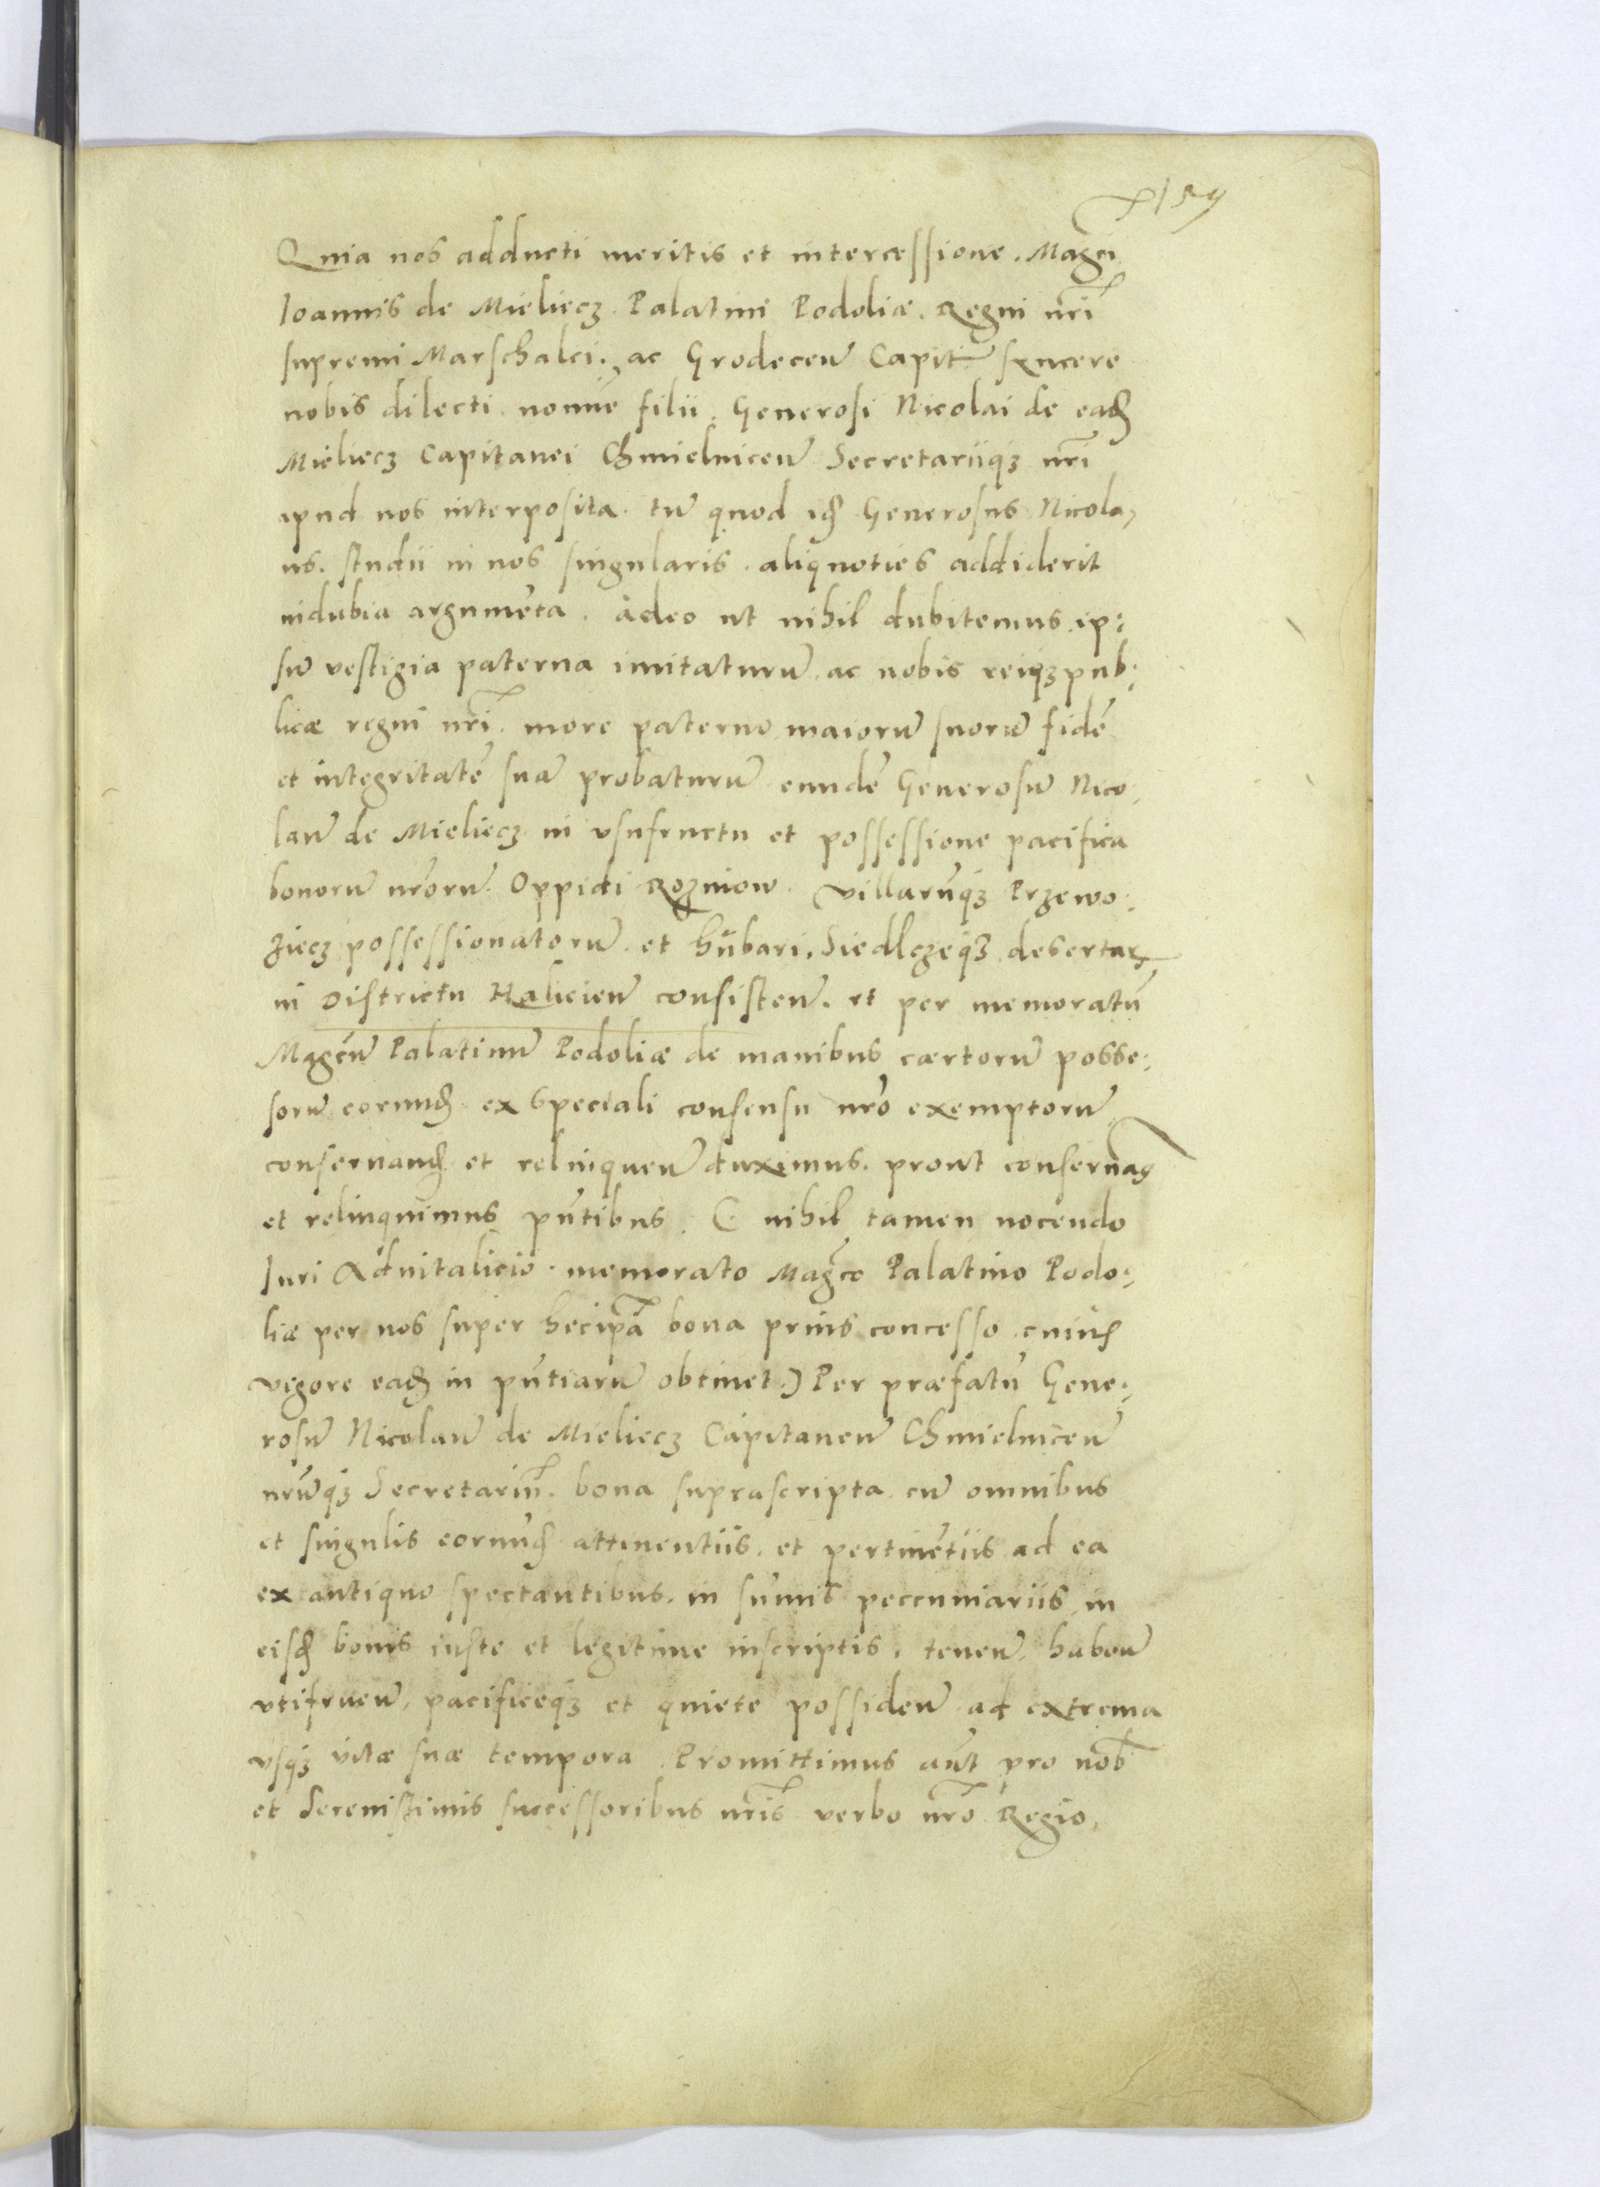 Quia nos adducti meritis et intercessione. Magci
Ioannis de Mieliecz Palatini Podoliæ. Regni nri
supremi Marschalci. ac Grodecen̄ Capit̄ syncere
nobis dilecti nomīe filii. Generosi Nicolai de ead
Mieliecz Capitanei Chmielnicen̄ Secretariiqz nri
apud nos interposita. tū quod id Generosus Nicola,
us. studii in nos singularis. aliquoties addiderit
indubia argumēta. adeo ut nihil dubitemus ip:
sū vestigia paterna imitaturū ac nobis reiqzpub:
licæ regni nri. more paterno maiorū suorū fidē
et integritatē suā probaturū eundē Generosū Nico,
laū de Mieliecz in vsufructu et possessione pacifica
bonorū nrorū. Oppidi Rozniow. villarūqz Przewo:
ziecz possessionatorū. et hubari. Siedlczeqz desertar
in Districtu Halicien̄ consisten̄. et per memoratū
Magcū Palatinū Podoliæ de manibus cærtorū posse:
sorū eorund ex speciali consensu nro exemptorū
conseruand et relinquen̄ duximus. prout conseruag
et relinquimus pntibus. C nihil tamen nocendo
Iuri Aduitalicio memorato Magco Palatino Podo:
liæ per nos super hecipa bona prius concesso cuius
vigore ead in pntiarū obtinet.) Per præfatū Gene:
rosū Nicolaū de Mieliecz Capitaneū Chmielnicen̄
nrūqz Secretariū. bona suprascripta cū omnibus
et singulis eorund attinentiis. et pertinētiis ad ea
ex antiquo spectantibus. in sumis peccuniariis in
eisd bonis iuste et legitime inscriptis. tenen̄. haben̄
vtifruen̄. pacificeqz et quiete possiden̄ ad extrema
vsqz vitæ suæ tempora. Promittimus aut pro nob
et Serenissimis successoribus nris verbo nro Regio,